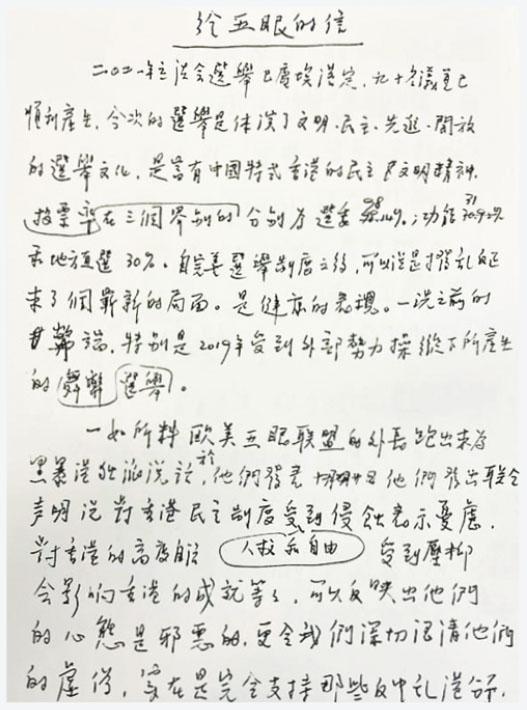 給五眼的信
二〇二一年立法會選舉已塵埃落定,九十名議員已
順利產生,今次的選舉是体現了文明、民主、先進、開放
的選舉文化,是富有中國特式香港的民主及文明精神,
投票率在三個界別的分別為選委98. 功能31
和地方直選30%。自完善選舉制度之後,可以說是撥亂反正
來了個嶄新的局面。是健康的表現。一洗之前的
弊端,特別是2019年受到外部勢力操縱下所產生
的舞弊選舉。
一如所料歐美五眼联盟的外長跑出來為
黑暴港独派說話,他們 他們發出联合
声明說對香港民主制度受到侵蝕表示憂慮,
對香港的高度自治 人权和自由 受到壓抑
会影响香港的成就等等,可以反映出他們
的心態是邪惡的,更令我們深切認清他們
的虛偽,實在是完全支持那些反中乱港分子,